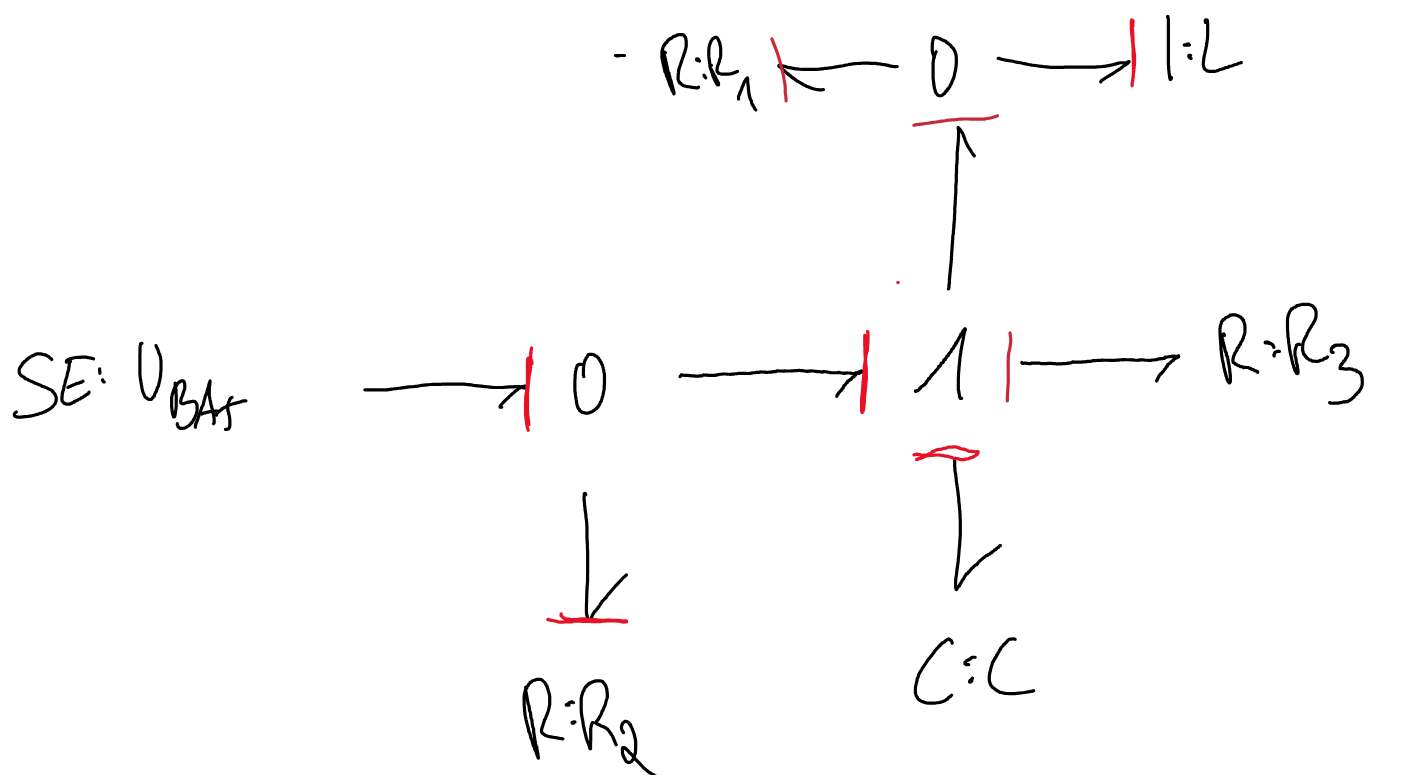 R:R1 0 I:L
SE: UBAT 0 1 R:R3
R:R2 C:C